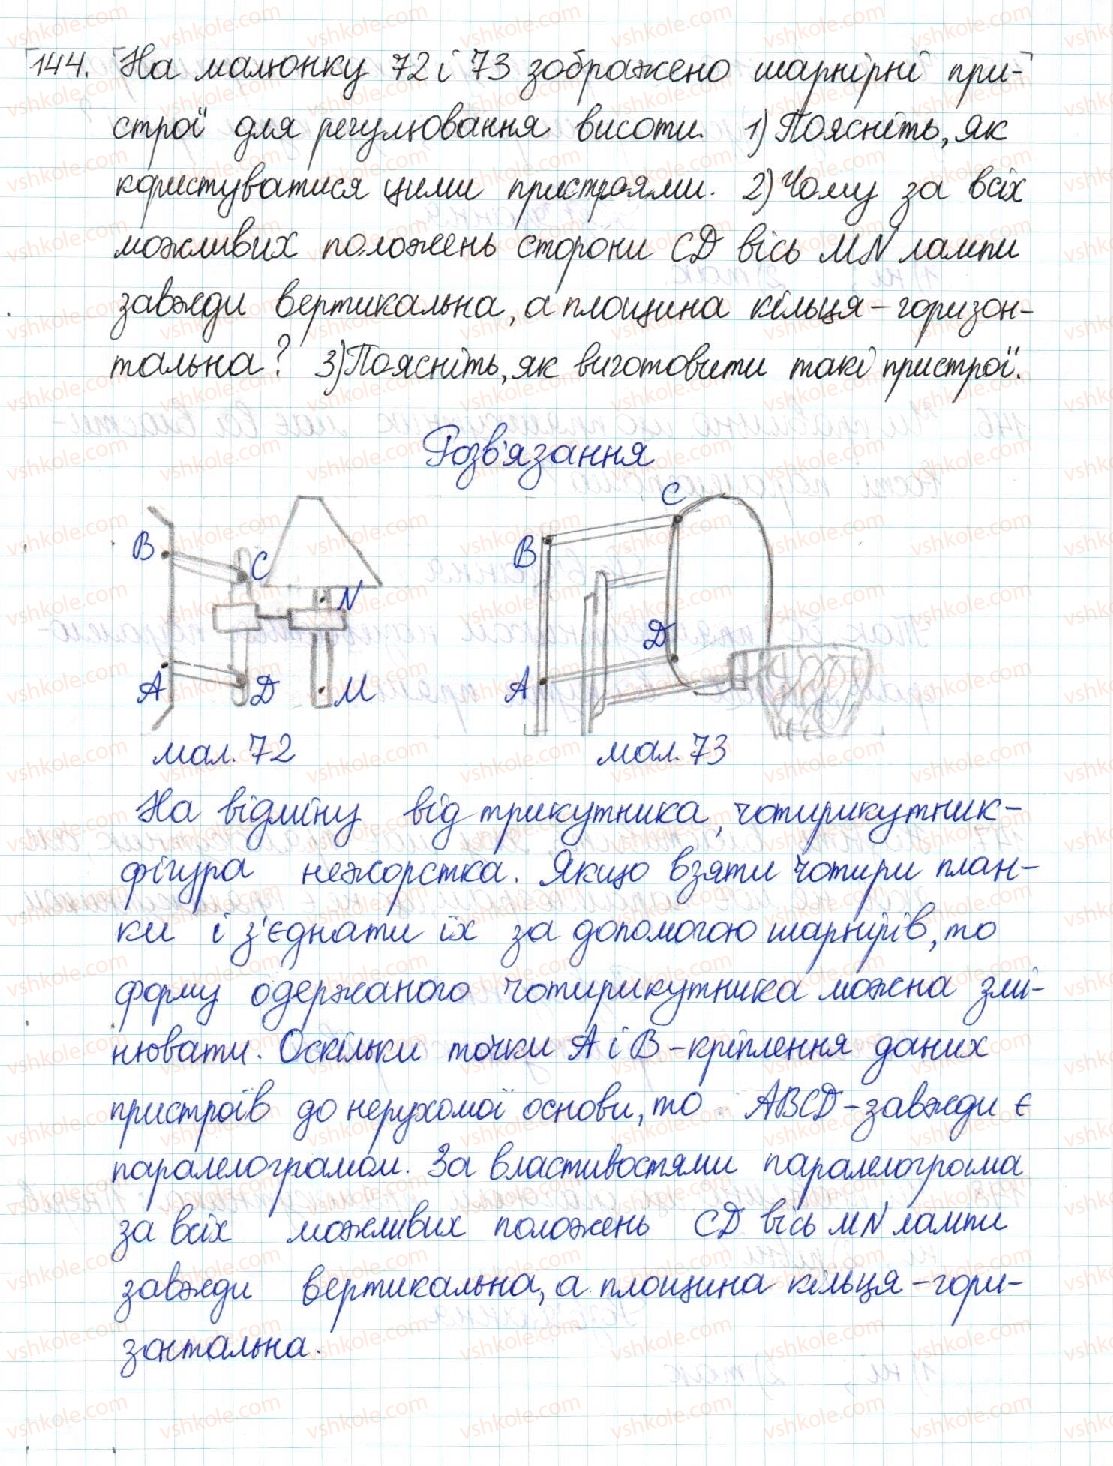 144. На малюнку 72 і 73 зображено шарнірні при-
строї для регулювання висоти. 1) Поясніть, як
користуватися цими пристроями. 2) Чому за всіх
можливих положень сторони CD вісь MN лампи
завжди вертикальна, а площина кільця - горизон-
тальна? 3) Поясніть, як виготовити такі пристрої.
Розв'язання
B C N A D M
B C D A
мал. 72 мал. 73
На відміну від трикутника, чотирикутник -
фігура нежорстка. Якщо взяти чотири план-
ки і з'єднати їх за допомогою шарнірів, то
форму одержаного чотирикутника можна змі-
нювати. Оскільки точки A і B - кріплення даних
пристроїв до нерухомої основи, то ABCD - завжди є
паралелограмом. За властивостями паралелограма
за всіх можливих положень CD вісь MN лампи
завжди вертикальна, а площина кільця - гори-
зонтальна.